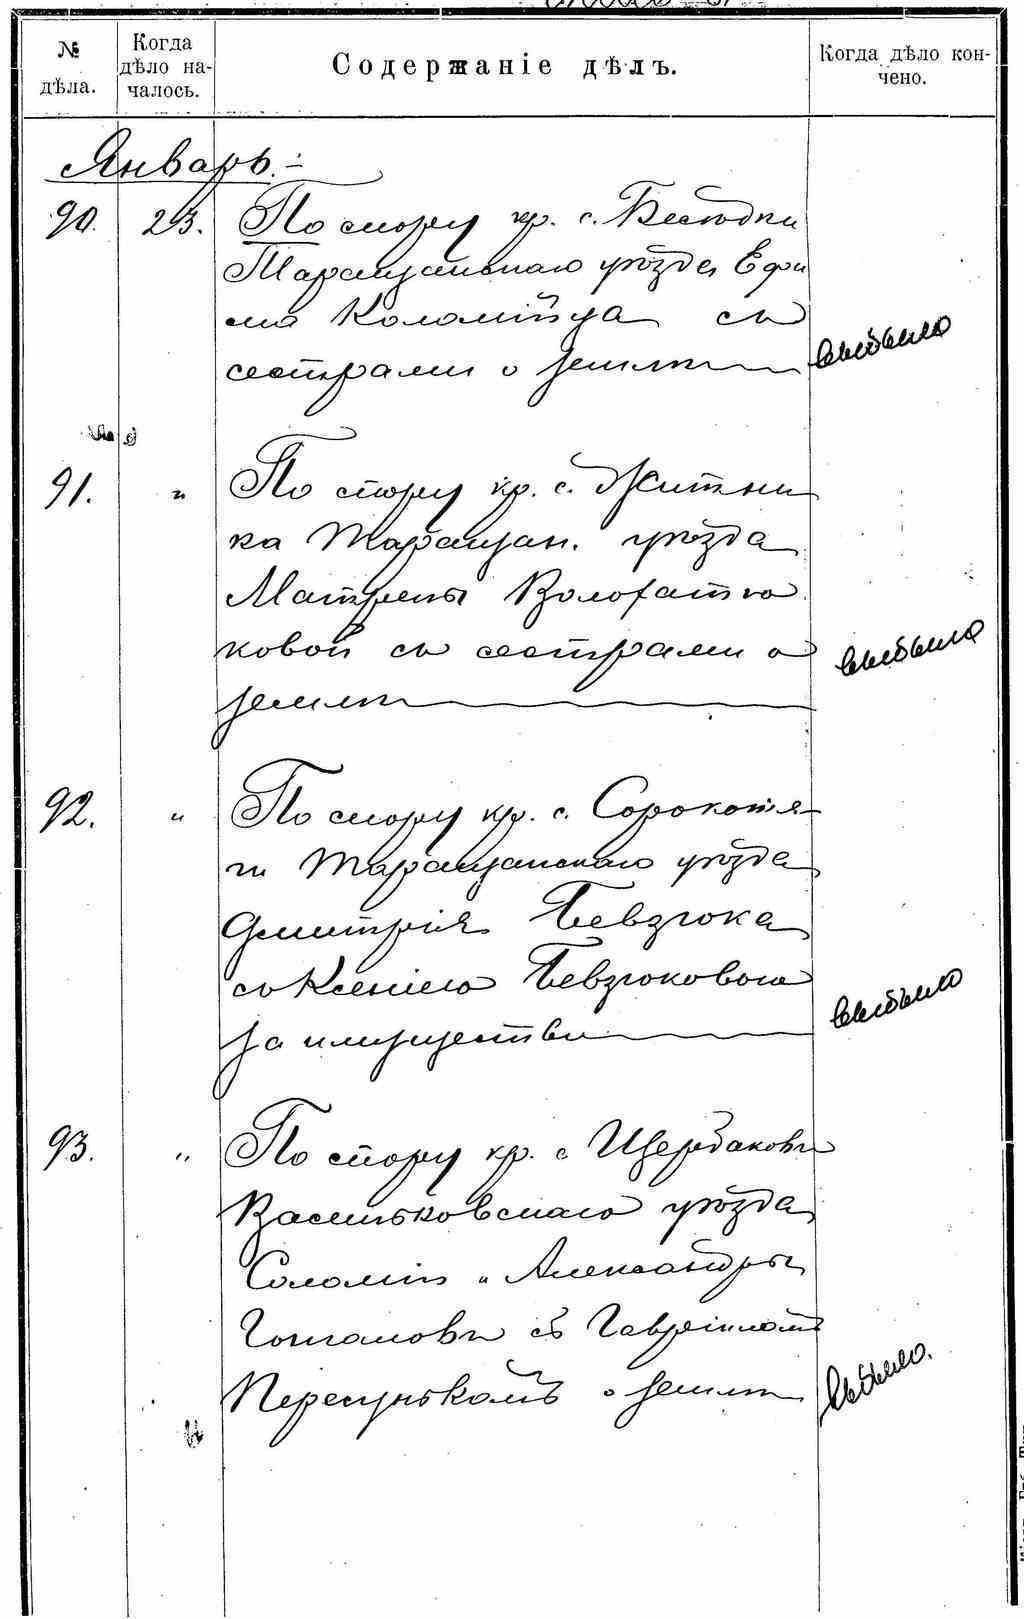 № дѣла.
Когда дѣло на-
чалось.
Содержаніе дѣлъ.
Когда дѣло кон-
чено.
Январь.
90. 23. По спору кр. с. Бесѣдки
Таращанскаго уѣзда Ефи
ма Коломійца съ
сестрами о землѣ выбыло
91. " По спору кр. с. Житни
ка Таращан. уѣзда
Матрены Волохатю
ковой съ сестрами о
землѣ выбыло
92. " По спору кр. с. Сорокотя-
ги Таращанскаго уѣзда
Дмитрія Бевзюка
съ Ксеніею Бевзюковою
за имущество выбыло
93. " По спору кр. с Щербаковки
Васильковскаго уѣзда
Соломіи и Александры
съ Гавріиломъ
о землѣ выбыло.